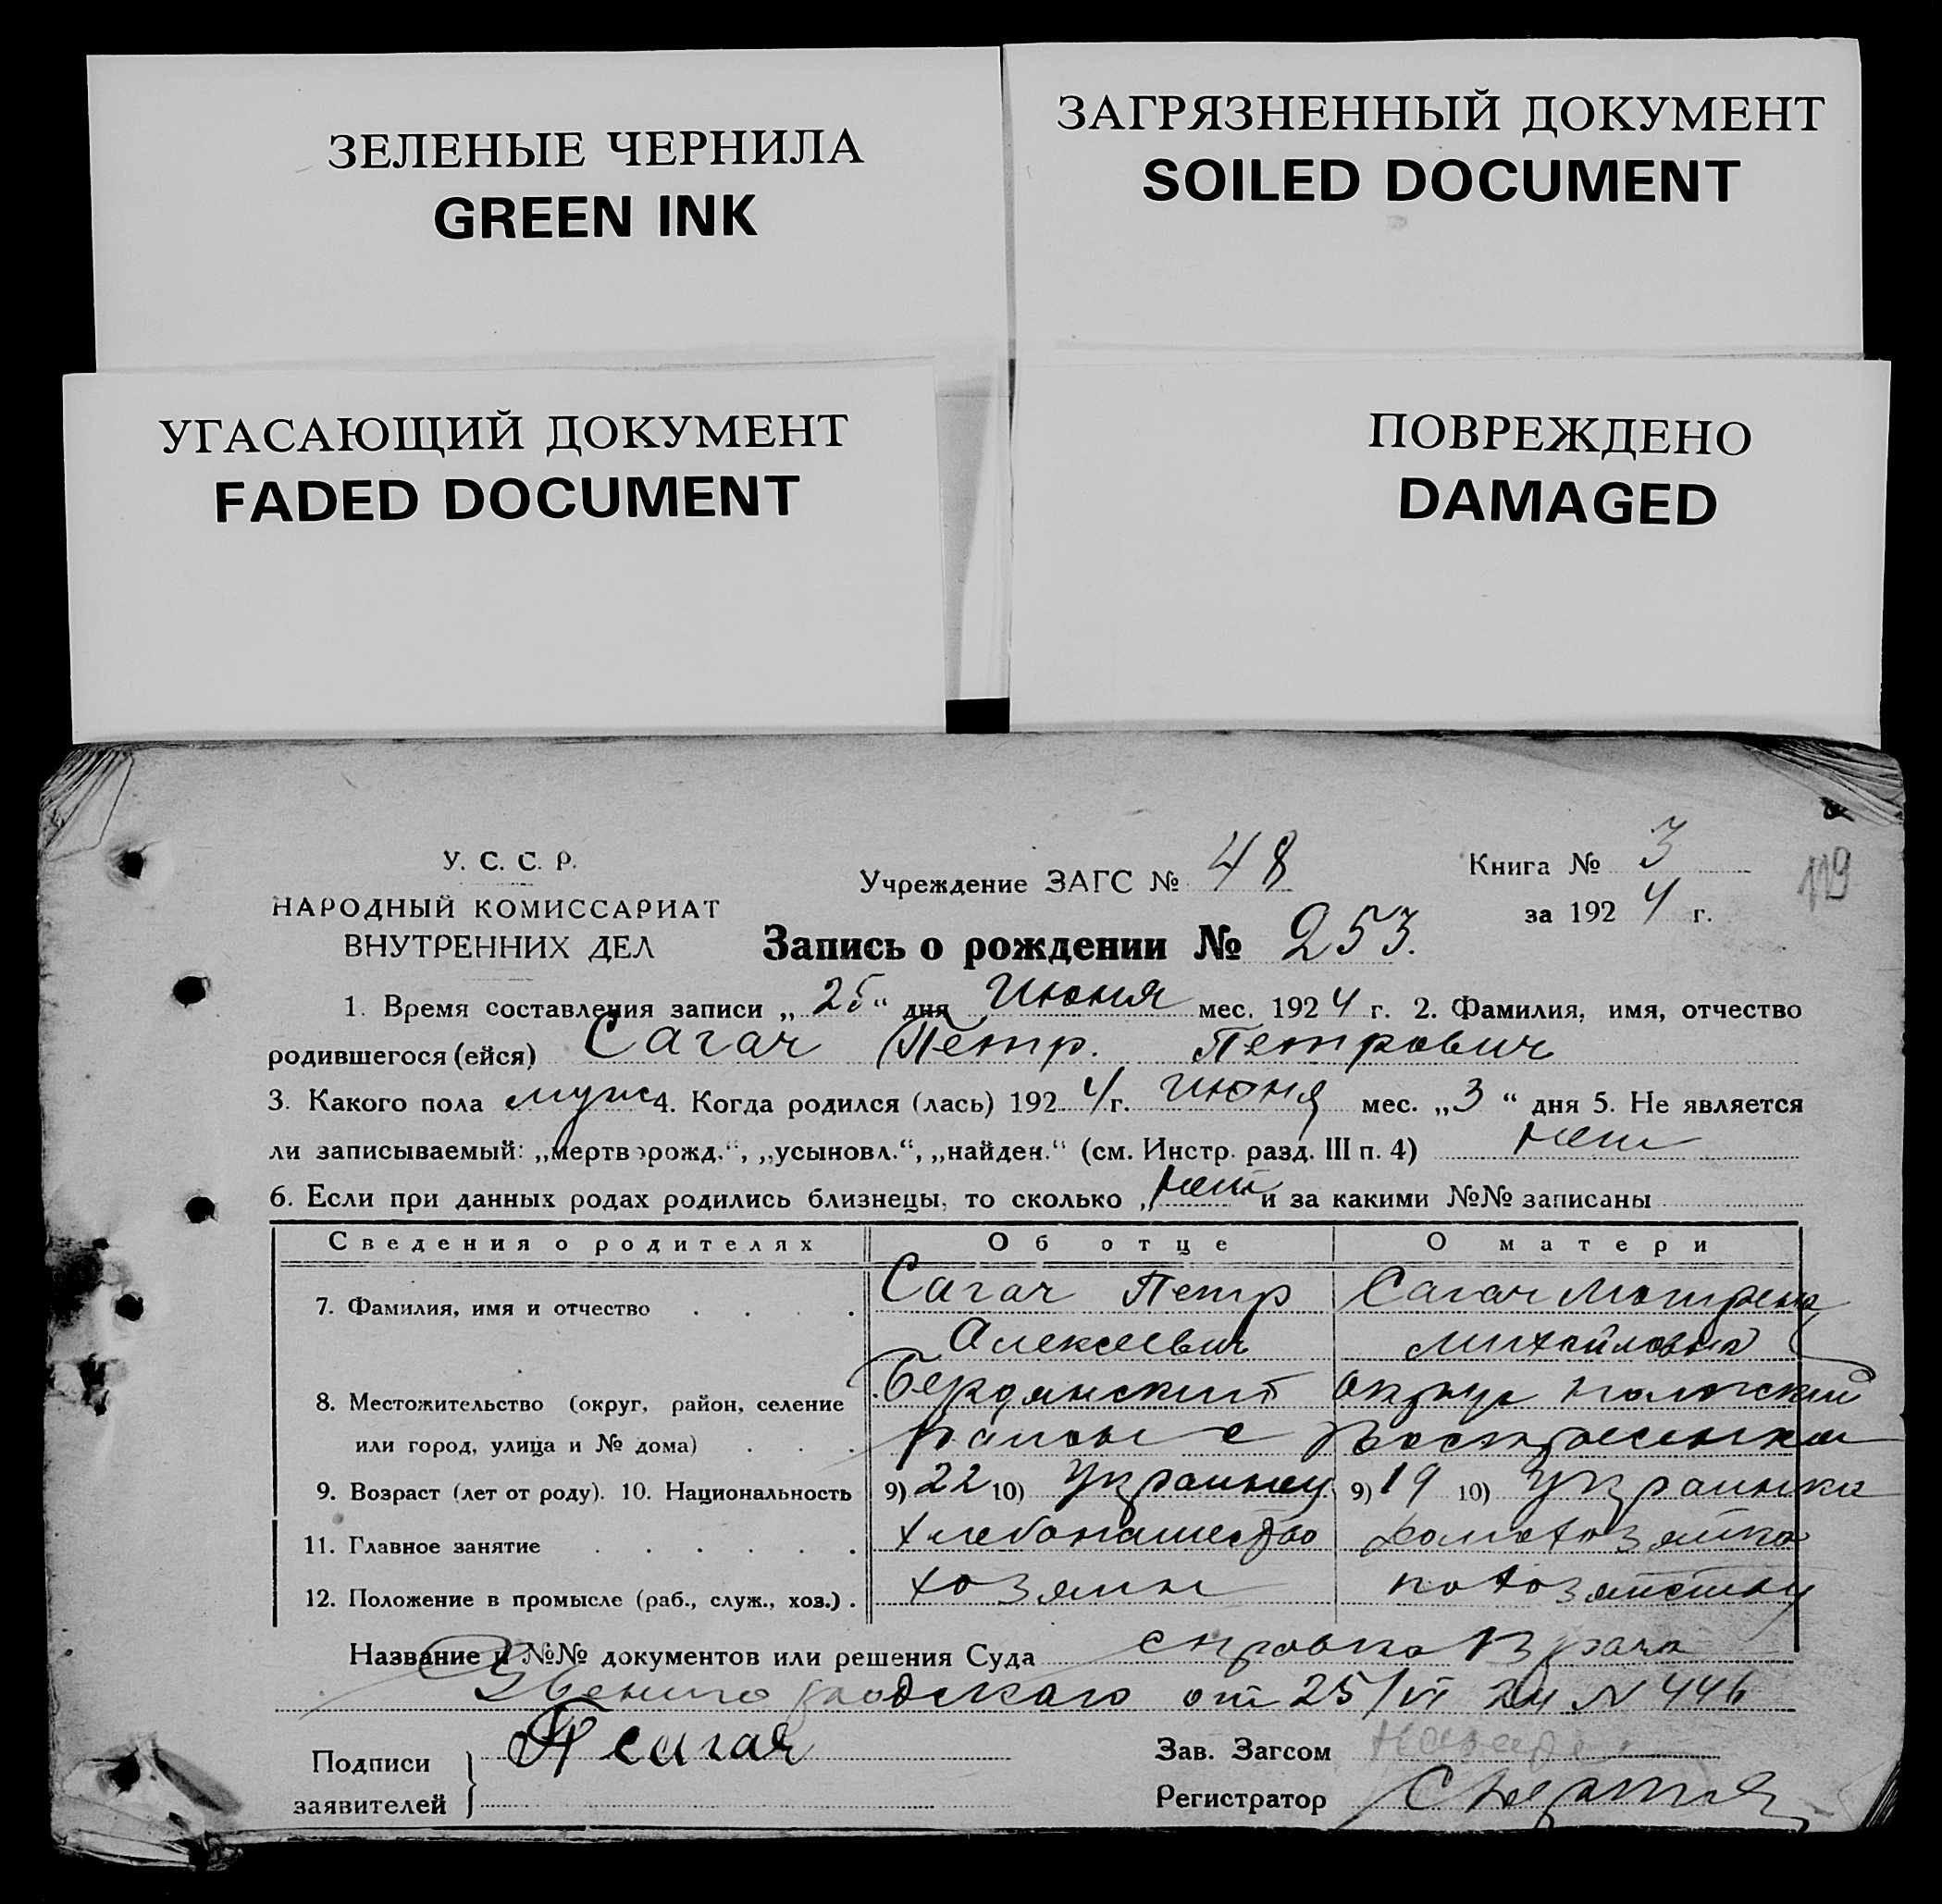 ЗЕЛЕНЫЕ ЧЕРНИЛА
GREEN INK
ЗАГРЯЗНЕННЫЙ ДОКУМЕНТ
SOILED DOCUMENT
УГАСАЮЩИЙ ДОКУМЕНТ
FADED DOCUMENT
ПОВРЕЖДЕНО
DAMAGED
У. С. С. Р.
НАРОДНЫЙ КОМИССАРИАТ
ВНУТРЕННИХ ДЕЛ
Учреждение ЗАГС № 48
Книга № 3
за 1924 г.
119
Запись о рождении № 253.
1. Время составления записи „25“ дня Июня мес. 1924 г. 2. Фамилия, имя, отчество
родившегося (ейся) Сагач Петр. Петрович
3. Какого пола муж 4. Когда родился (лась) 1924 г. июня мес. „3“ дня 5. Не является
ли записываемый: „мертворожд.“, „усыновл.“, „найден.“ (см. Инстр. разд. III п. 4) нет
6. Если при данных родах родились близнецы, то сколько „нет и за какими №№ записаны
Сведения о родителях Об отце О матери
7. Фамилия, имя и отчество Сагач Петр Сагач Мотрена
Алексеевич Михайловна
8. Местожительство (округ, район, селение Бердянский округ Пологский
или город, улица и № дома) район с Воскресенка
9. Возраст (лет от роду). 10. Национальность 9) 22 10) Украинец 9) 19 10) Украинка
11. Главное занятие хлебопашество домохозяйка
12. Положение в промысле (раб., служ., хоз.) хозяин по хозяйству
Название и №№ документов или решения Суда справка Врача
от 25/VI 24 N 446
Подписи
заявителей
П Сагач
Зав. Загсом
Регистратор